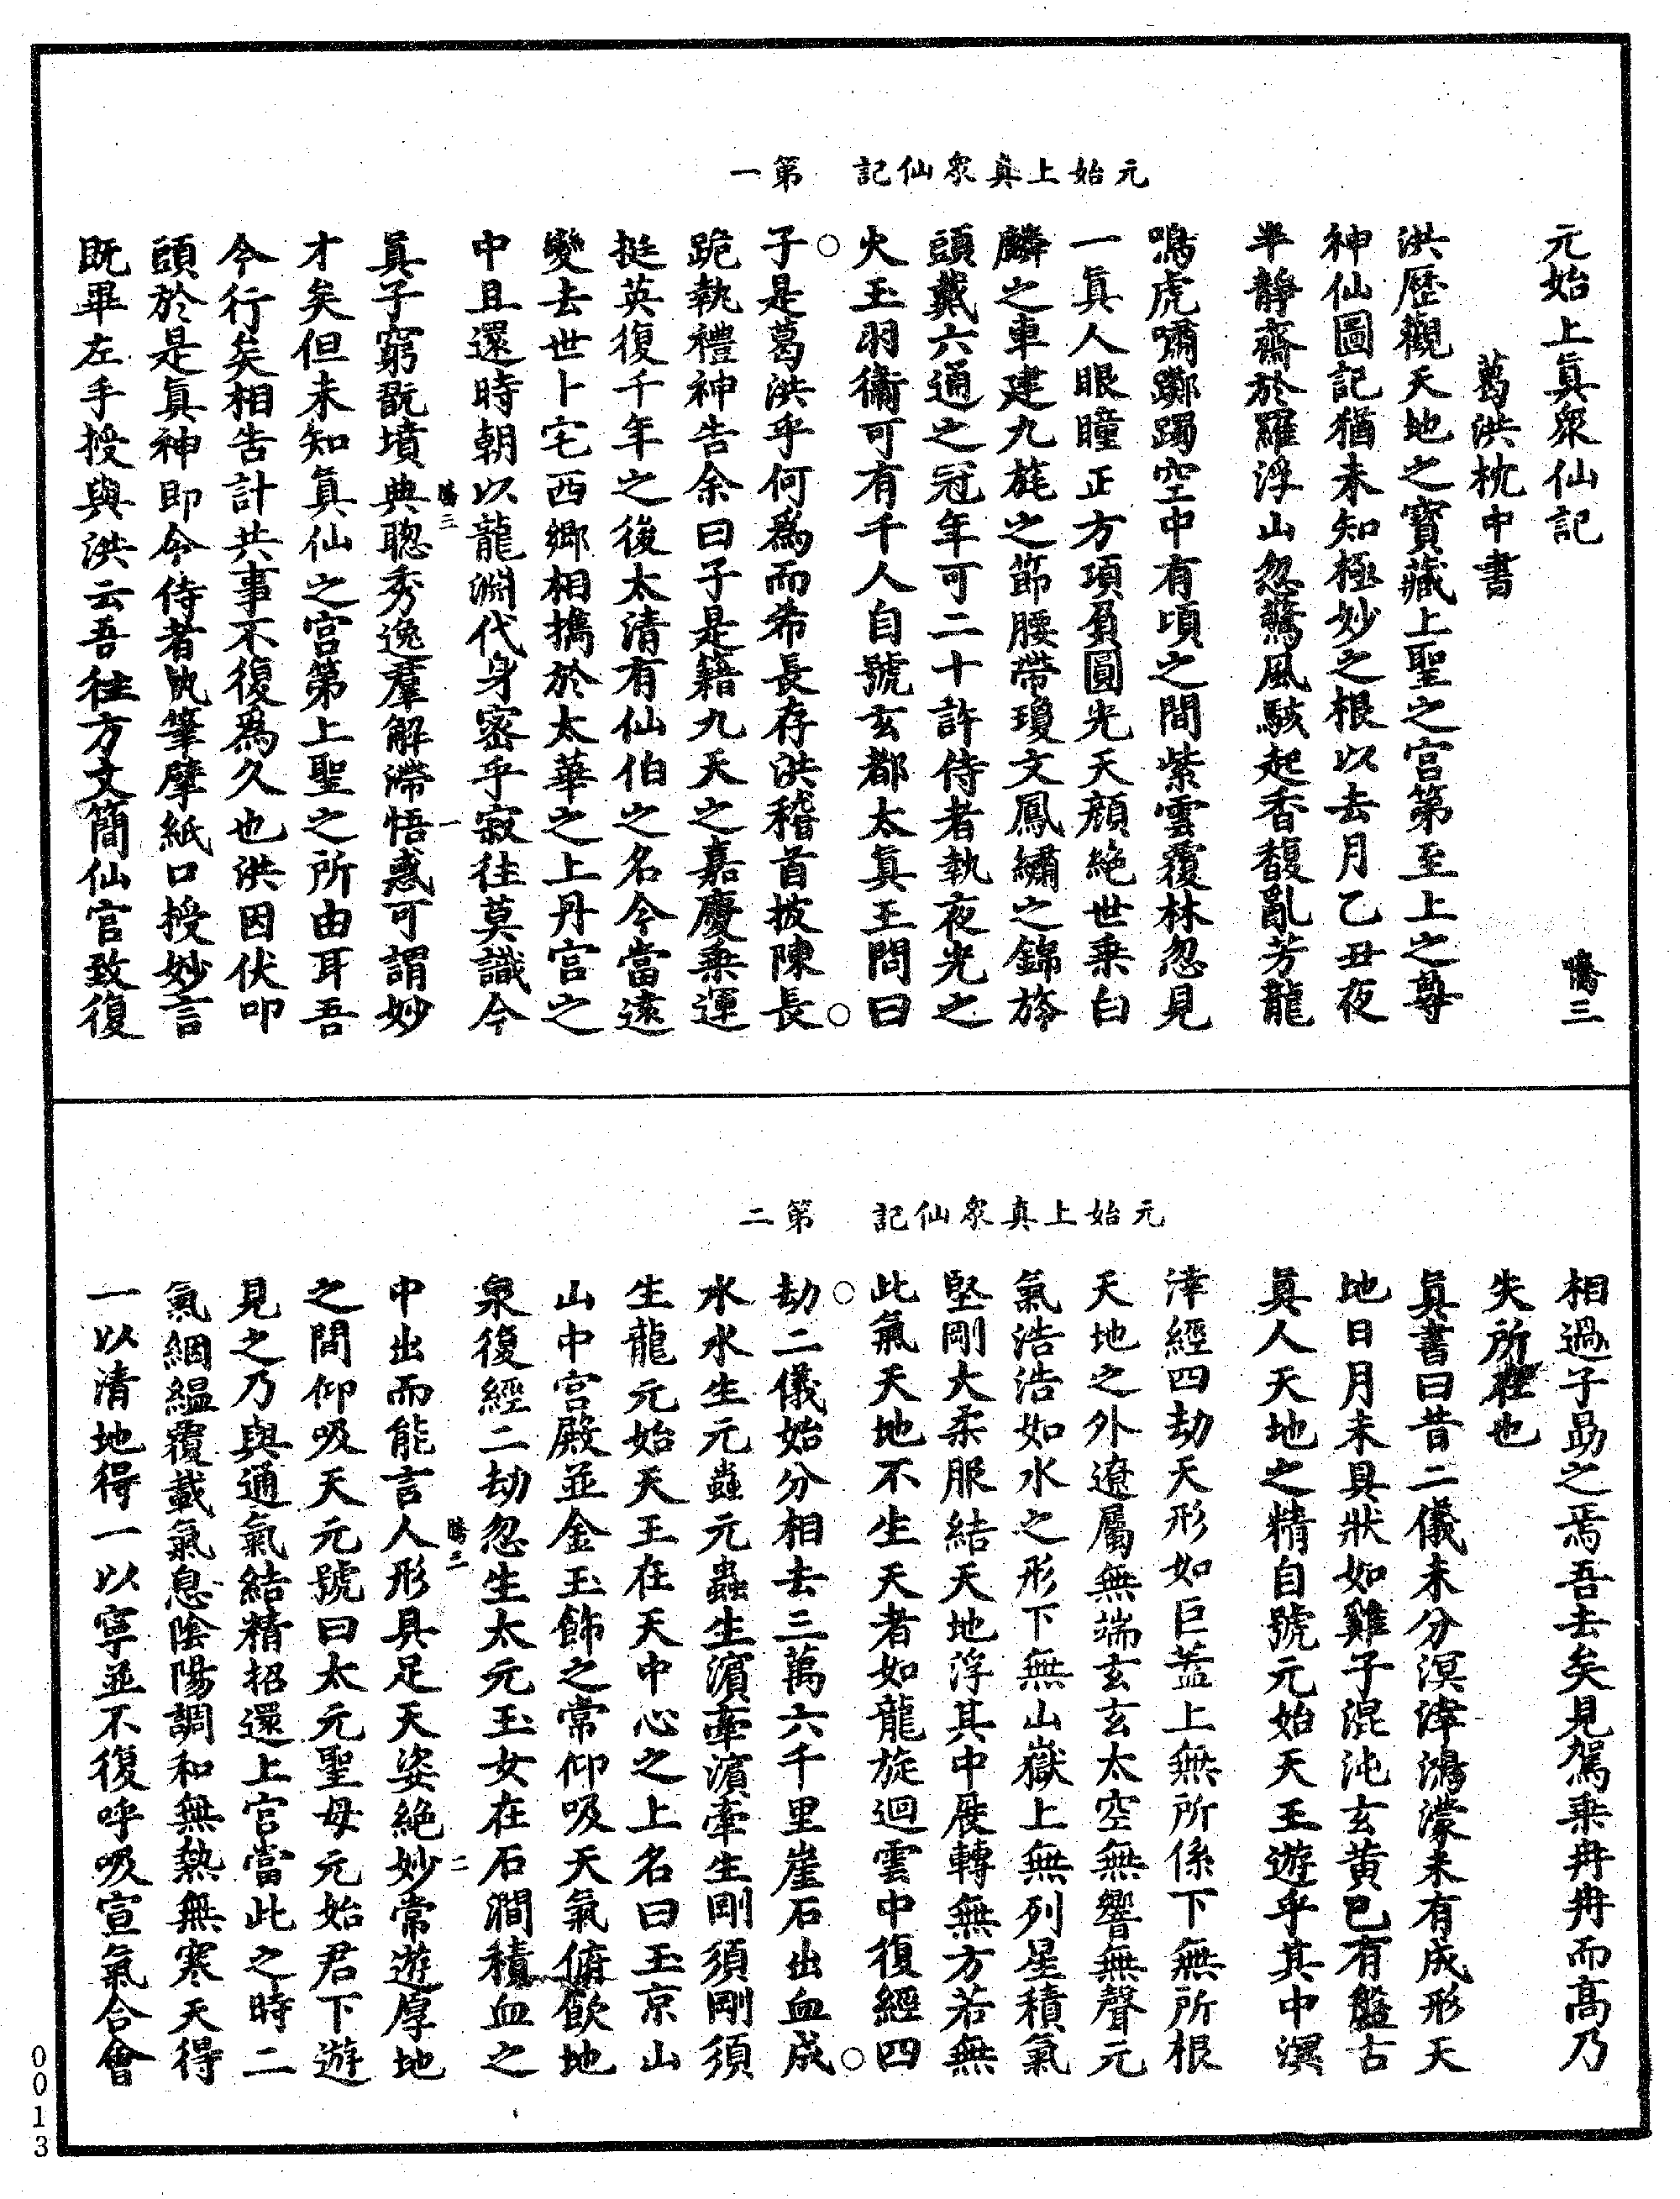 元始上真眾仙記　第一
元始上真眾仙記　騰三
葛洪枕中書
洪歷觀天地之寶藏上聖之宮第至上之尊
神仙圖記猶未知極妙之根以去月乙丑夜
半靜齋於羅浮山忽驚風駭起香馥亂芳龍
鳴虎嘯躑躅空中有頃之間紫雲覆林忽見
一真人眼瞳正方項負圓光天顏絕世乗白
麟之車建九旄之節腰帶瓊文鳳繡之錦旂
頭戴六通之冠年可二十許侍者執夜光之
火玉羽衛可有千人自號玄都太真王問曰
子是葛洪乎何為而希長存洪稽首披陳長
跪執禮神告余曰子是籍九天之嘉慶乗運
挺英復千年之後太清有仙伯之名今當遠
變去世卜宅西鄉相擕於太華之上丹宮之
中且還時朝以龍淵代身密乎寂往莫識今
騰三　一
真子窮翫墳典聦秀逸羣解滯悟惑可謂妙
才矣但未知真仙之宮第上聖之所由耳吾
今行矣相告計共事不復為久也洪因伏叩
頭於是真神即令侍者執筆擘紙口授妙言
既畢左手授與洪云吾往方丈簡仙官致復
元始上真眾仙記　第二
相過子勗之焉吾去矣見駕乗冉冉而高乃
失所在也
真書曰昔二儀未分溟涬鴻濛未有成形天
地日月未具狀如雞子混沌玄黄已有盤古
真人天地之精自號元始天王遊乎其中溟
涬經四劫天形如巨蓋上無所係下無所根
天地之外遼屬無端玄玄太空無響無聲元
氣浩浩如水之形下無山嶽上無列星積氣
堅剛大柔服結天地浮其中展轉無方若無
此氣天地不生天者如龍旋迴雲中復經四
劫二儀始分相去三萬六千里崖石出血成
水水生元蟲元蟲生濵牽濵牽生剛須剛須
生龍元始天王在天中心之上名曰玉京山
山中宮殿並金玉飾之常仰吸天氣俯飲地
泉復經二劫忽生太元玉女在石澗積血之
騰三　二
中出而能言人形具足天姿絕妙常遊厚地
之間仰吸天元號曰太元聖母元始君下遊
見之乃與通氣結精招還上宮當此之時二
氣絪縕覆載氣息陰陽調和無熱無寒天得
一以清地得一以寧並不復呼吸宣氣合會
0013